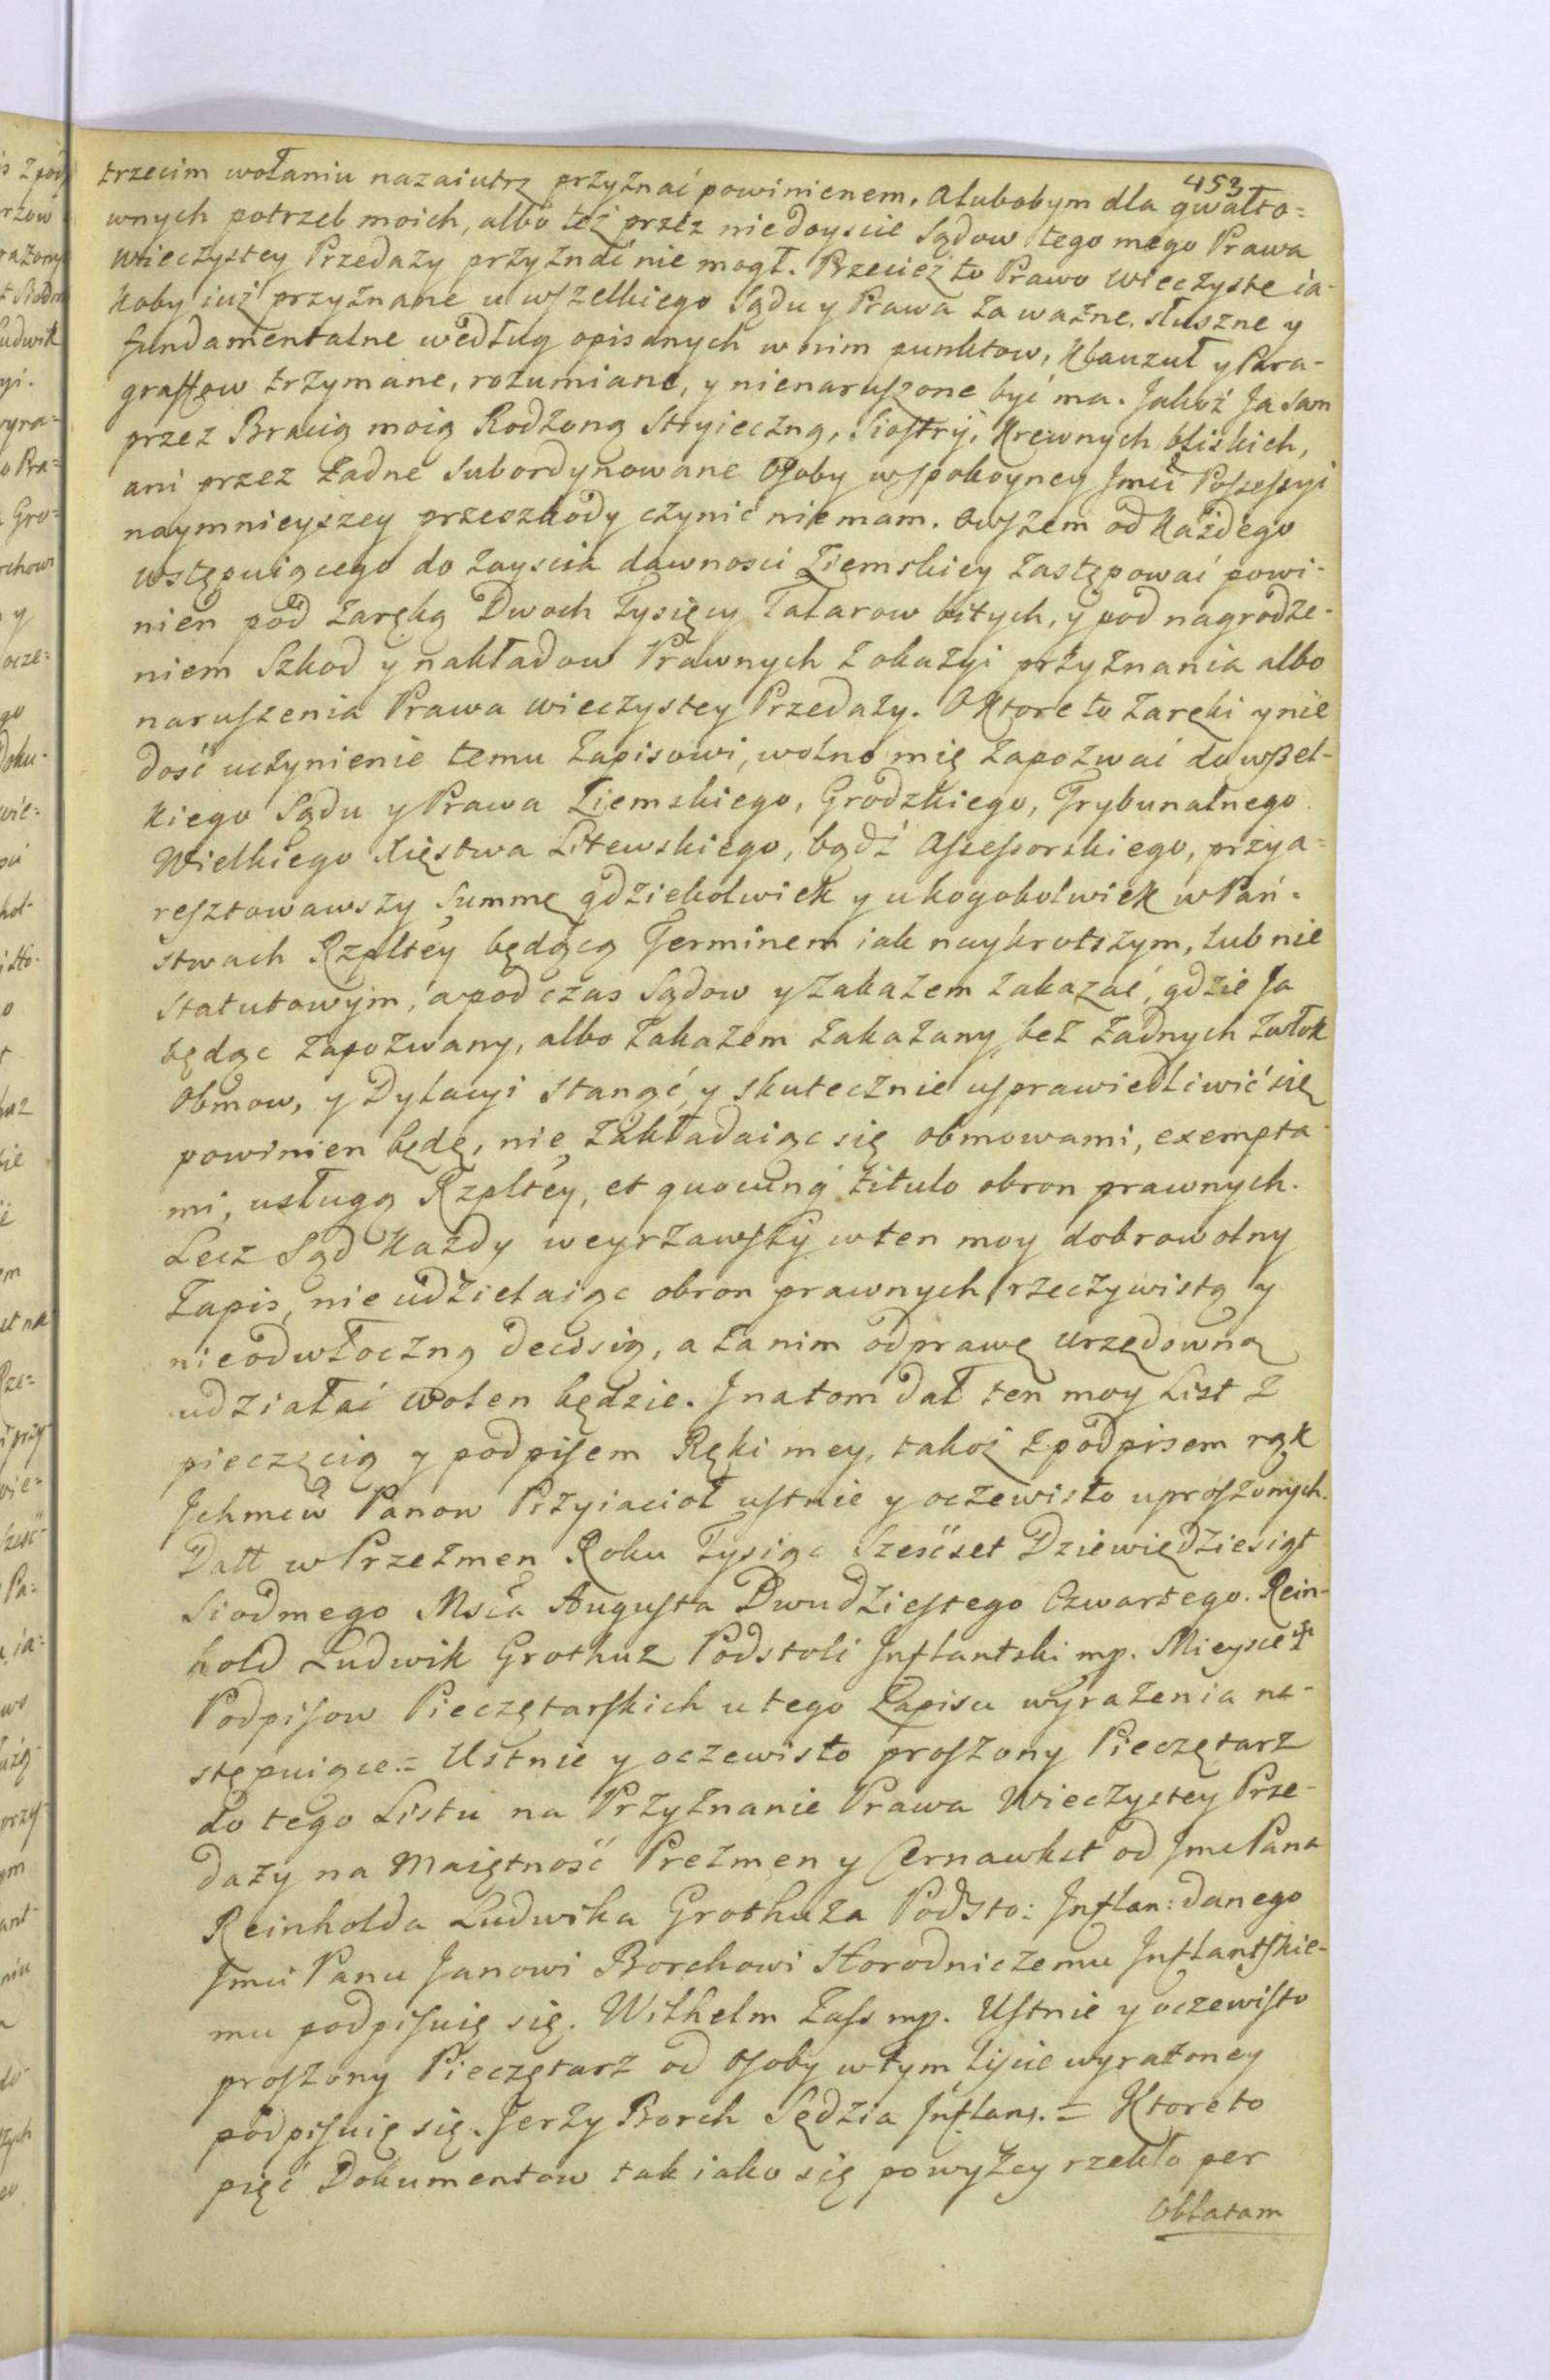 453
trzecim wołaniu nazaiutrz przyznać powinienem. Alubobym dla gwałto=
wnych potrzeb moich, albo też przez niedoyscie Sądow tego mego Prawa
wieczystey Przedaży przyznać nie mogł. Przecież to Prawo wieczyste ia-
koby iuż przyznane u wszelkiego Sądu y Prawa za ważne, słuszne y
fundamentalne według opisanych w nim punktow, Klauzuł y Para-
graffow trzymane, rozumiane, y nienaruszone być ma. Jakoż Ja sam
przez Bracią moią Rodzoną Stryieczną, Siostry, Krewnych bliskich,
ani przez żadne Subordynowane Osoby w spokoyney Jmći Possessyi
naymnieyszey przeszkody czynić nie mam. Owszem od każdego
wstępuiącego do zayscia dawnosci Ziemskiey zastępować powi-
nien pod zaręką Dwoch Tysięcy Talarow bitych, y pod nagrodze-
niem Szkod y nakładow Prawnych z okazyi przyznania albo
naruszenia Prawa wieczystey Przedaży. O Ktore to zaręki y nie
dość uczynienie temu Zapisowi, wolno mię zapozwać do wszel-
kiego Sądu y Prawa Ziemskiego, Grodzkiego, Trybunalnego
Wielkiego Xięstwa Litewskiego, bądź Assessorskiego, przya=
resztowawszy Summę gdziekolwiek y u kogokolwiek w Pań-
stwach Rzpltey będącą Terminem iak naykrotszym, lub nie
Statutowym, a pod czas Sądow y zakazem zakazać, gdzie Ja
będąc zapozwany, albo zakazem zakazany bez żadnych zwłok
Obmow, y Dylacyi stanąć, y skutecznie usprawiedliwić się
powinien będę, nie zakładaiąc się obmowami, exempta-
mi, usługą Rzpltey, et quocunq titulo obron prawnych.
Lecz Sąd każdy weyrzawszy w ten moy dobrowolny
Zapis, nie udzielaiąc obron prawnych rzeczywistą y
nieodwłoczną decisią, a za nim odprawę urzędowną
udziałać wolen będzie. J na tom dał ten moy List z
pieczęcią y podpisem Ręki mey, takoż z podpisem rąk
Jchmciw Panow Przyiacioł ustnie y oczewisto uproszonych.
Datt w Przezmen Roku Tysiąc Szesćset Dziewiędziesiąt
Siodmego Msca Augusta Dwudziestego Czwartego. Rein-
hold Ludwik Grothuz Podstoli Jnflantski mp. Mieysce
Podpisow Pieczętarskich u tego Zapisu wyrażenia na-
stępuiące = Ustnie y oczewisto proszony Pieczętarz
do tego Listu na Przyznanie Prawa Wieczystey Prze-
daży na Maiętność Prezmen y Arnawkst od Jmc Pana
Reinholda Ludwika Grothuza Podsto: Jnflan: danego
Jmći Panu Janowi Borchowi Horodniczemu Jnflantskie-
mu podpisuię się. Wilhelm Zass mp. Ustnie y oczewisto
proszony Pieczętarz od Osoby w tym liscie wyrażoney
podpisuię się. Jerzy Borch Sędzia Jnflans. = Ktore to
pięć Dokumentow tak iako się powyżey rzekło per
Oblatam